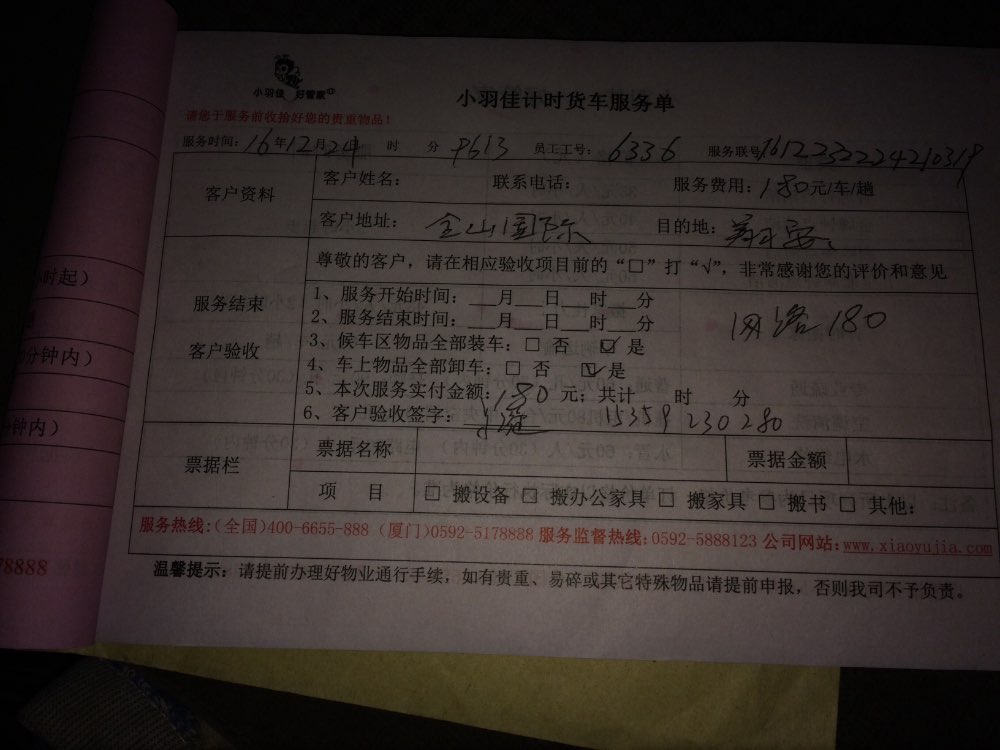 小时起）
0分钟内）
钟内）
78888
小羽佳 好管家
小羽佳计时货车服务单
请您于服务前收拾好您的贵重物品！
服务时间：16年12月24 时 分 9613 员工工号：6336 服务联号
客户资料
客户姓名： 联系电话： 服务费用：180元/车/趟
客户地址：金山国际 目的地：翔安
尊敬的客户，请在相应验收项目前的“□”打“√”，非常感谢您的评价和意见
服务结束
客户验收
1、服务开始时间：___月___日___时___分
2、服务结束时间：___月___日___时___分
网络180
3、候车区物品全部装车：□ 否 ☑ 是
4、车上物品全部卸车：□ 否 ☑ 是
5、本次服务实付金额：180元；共计 时 分
6、客户验收签字： 15359 230280
票据栏
票据名称 票据金额
项 目 □ 搬设备 □ 搬办公家具 □ 搬家具 □ 搬书 □ 其他：
服务热线:(全国)400-6655-888 (厦门)0592-5178888 服务监督热线:0592-5888123 公司网站:www.xiaoyujia.com
温馨提示：请提前办理好物业通行手续，如有贵重、易碎或其它特殊物品请提前申报，否则我司不予负责。